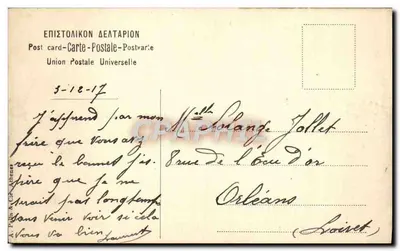 ΕΠΙΣΤΟΛΙΚΟΝ ΔΕΛΤΑΡΙΟΝ
Post card-Carte-Postale-Postkarte
Union Postale Universelle
3-12-17
J'apprend par mon
frère que vous avez
reçu le bonnet j'es
père que je ne
serait pas longtemps
sans venir voir si cela
vous va bien Laurent
Melle Solange Jollet
8 rue de l'Ecu d'or
Orléans
(Loiret)
CPAPHIL